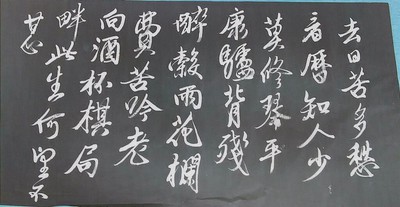 去日苦多愁
看曆知人少
莫修琴平
康驢背殘
醉穀雨花欄
費苦吟老
向酒杯棋局
畔此生何望不
甘心